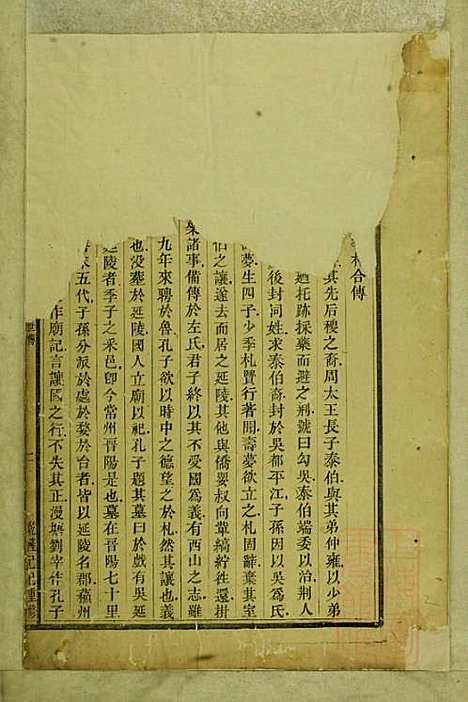 合傳
其先后稷之裔周太王長子泰伯與其弟仲雍以少弟
迺托跡採藥而避之荆號曰勾吳泰伯端委以治荆人
後封同姓求泰伯裔封於吳都平江子孫因以吳爲氏
夢生四子少季札賢行著聞壽夢欲立之札固辭棄其室
之讓遂去而居之延陵其他與僑嬰叔向軰縞紵徃還掛
諸事備傳於左氏君子終以其不受國爲義有西山之志雖
九年來聘於魯孔子欲以時中之德望之於札然其讓也義
也没塟於延陵國人立廟以祀孔子題其墓曰於戲有吳延
延陵者季子之采邑卽今常州晋陽是也墓在晋陽七十里
五代子孫分派於處於婺於台者皆以延陵名郡蘓州
作廟記言讓國之行不失其正漫塘劉宰作孔子